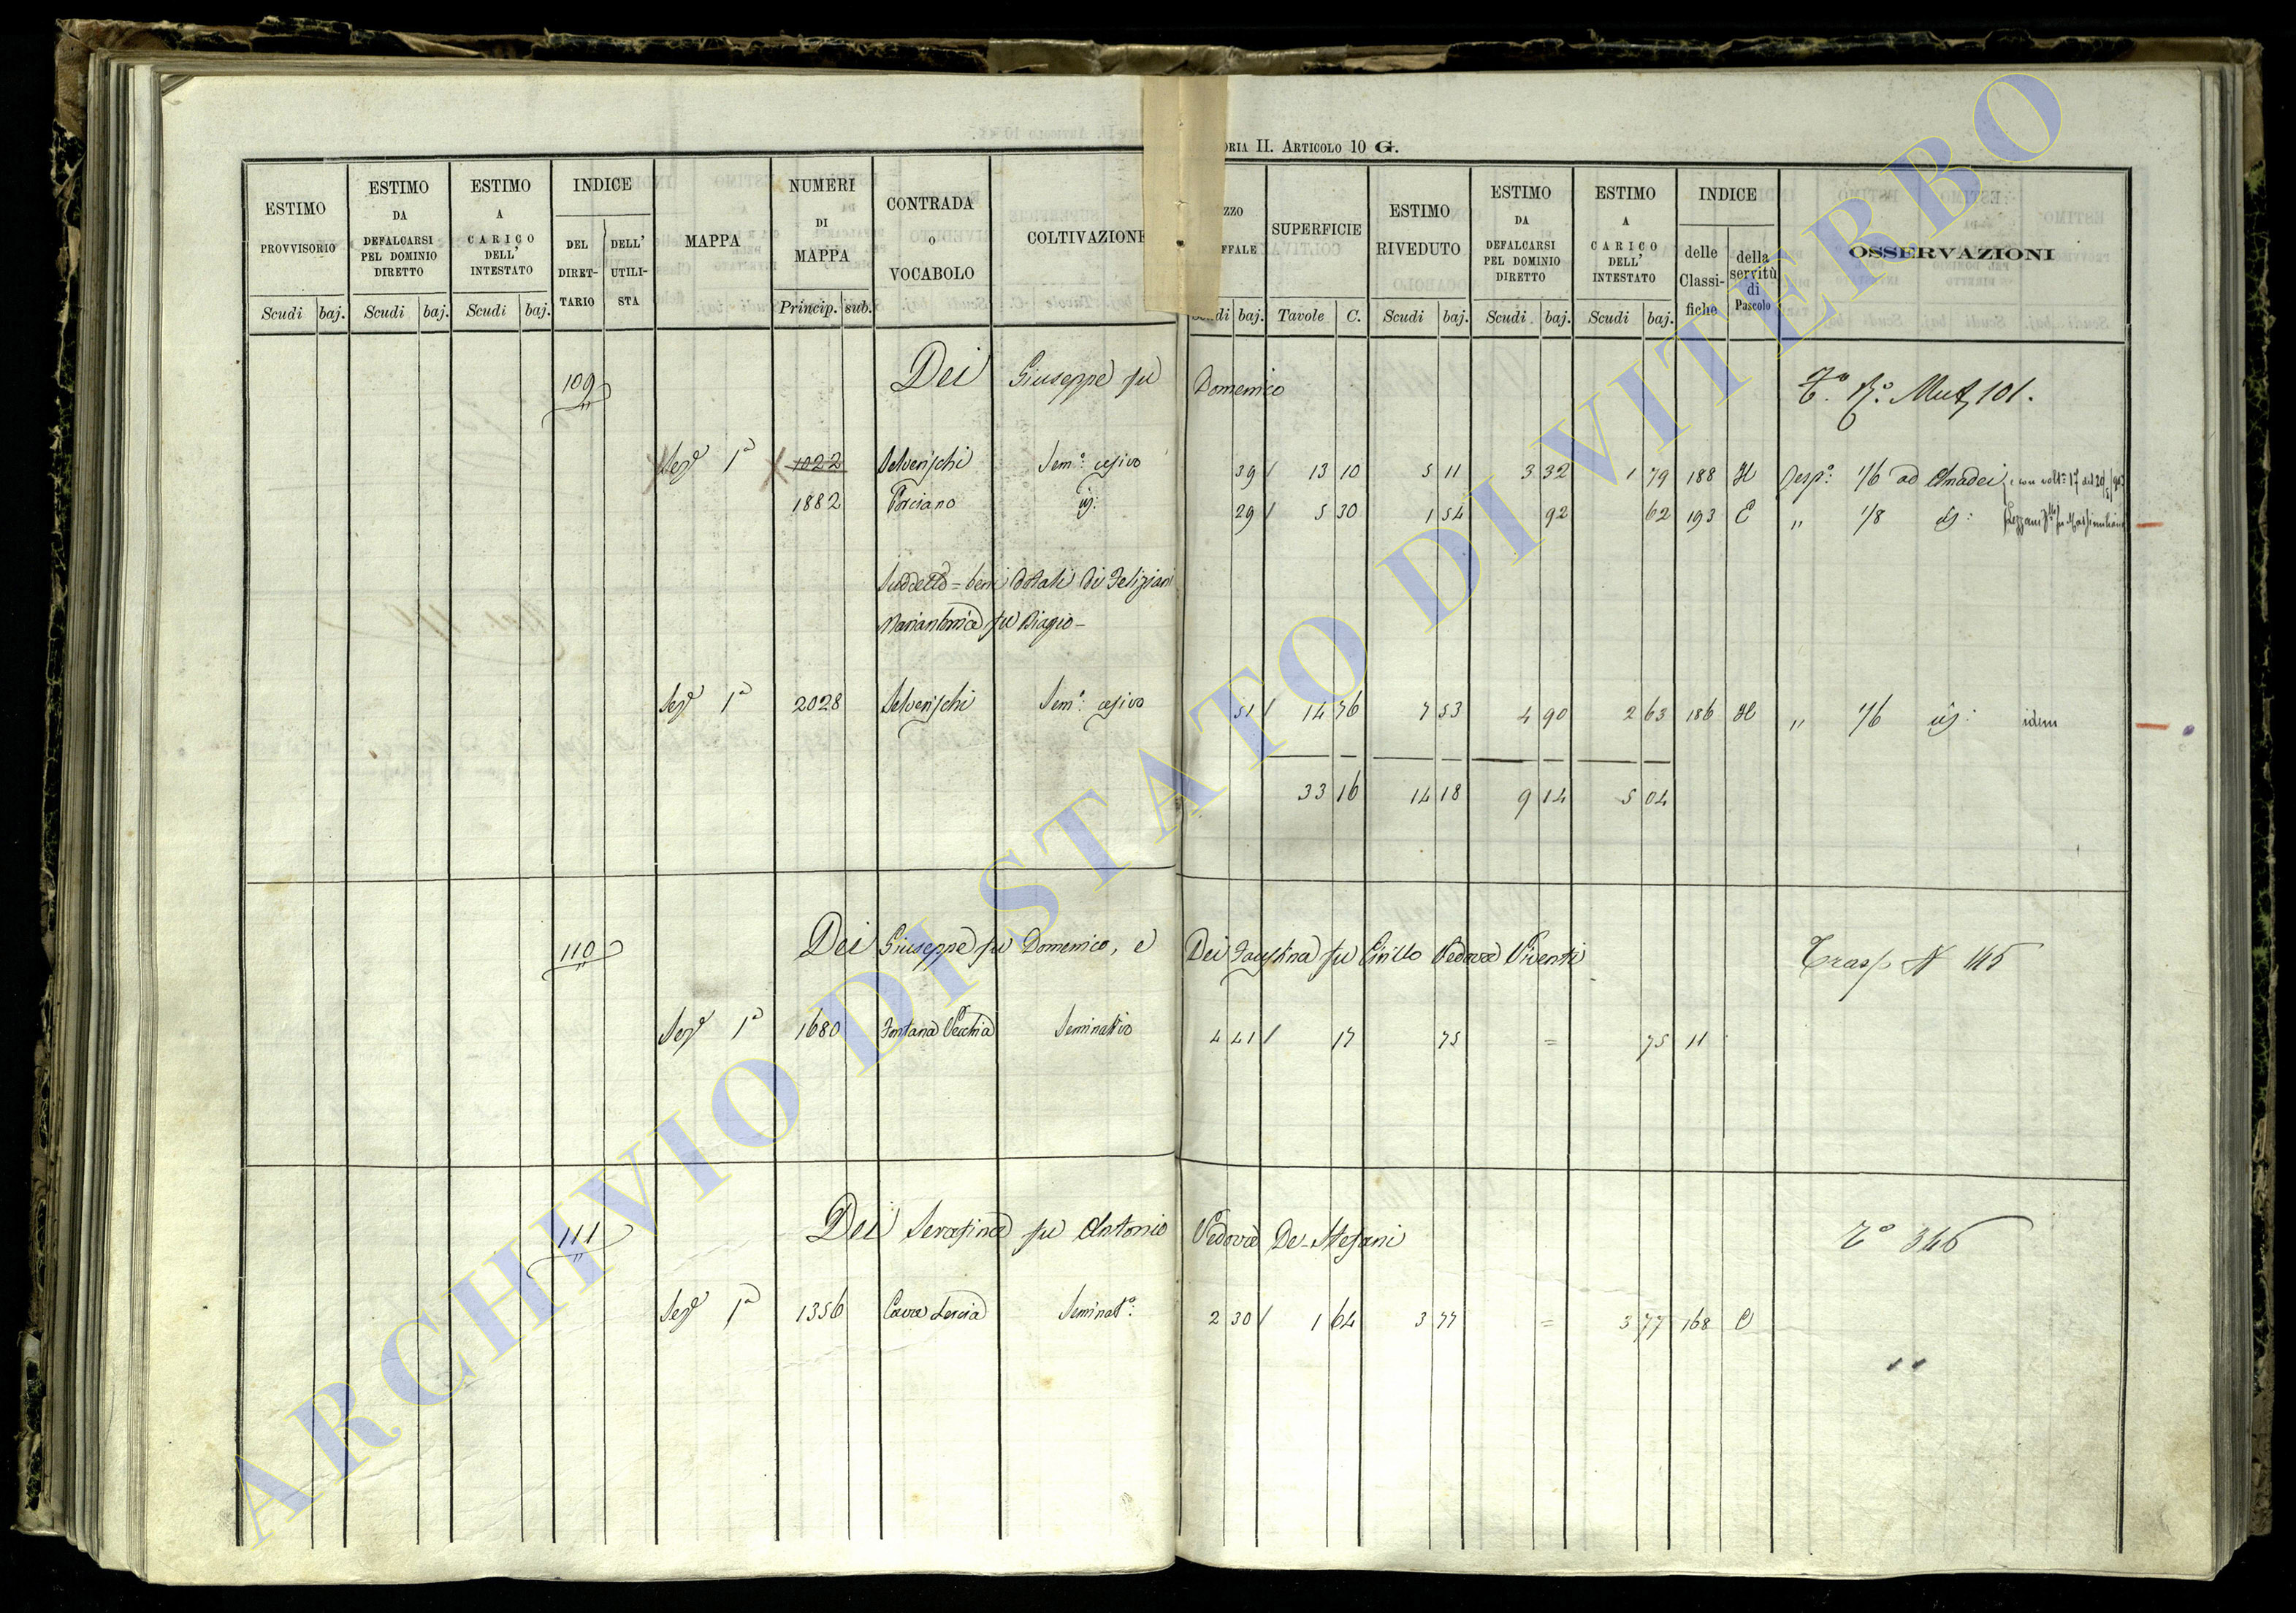 ORIA II. ARTICOLO 10 G.
ESTIMO PROVVISORIO
ESTIMO DA DEFALCARSI PEL DOMINIO DIRETTO
ESTIMO A CARICO DELL' INTESTATO
INDICE
DEL DIRETTARIO
DELL' UTILISTA
MAPPA
NUMERI DI MAPPA
CONTRADA O VOCABOLO
COLTIVAZIONE
ZZO FFALE
SUPERFICIE
ESTIMO RIVEDUTO
ESTIMO DA DEFALCARSI PEL DOMINIO DIRETTO
ESTIMO A CARICO DELL' INTESTATO
INDICE
delle Classifiche
della servitù di Pascolo
OSSERVAZIONI
Scudi baj. Scudi baj. Scudi baj. Princip. sub. di baj. Tavole C. Scudi baj. Scudi baj. Scudi baj.
109 Dei Giuseppe fu Domenico Mut. 101.
Sez.e 1a 1022 Selvenschi Sem.o 39 13 10 5 11 3 32 1 79 188 H Resp.o 1/6 ad Amadei
1882 Porciano 29 5 30 1 54 92 62 193 E " 1/8
Suddetto = beni dotali di Feliziani
Mariantonia fu Biagio -
Sez.e 1a 2028 Selvenschi Sem.o 51 14 76 7 53 4 90 2 63 186 H " 1/6 idem
33 16 14 18 9 14 5 04
110 Dei Giuseppe fu Domenico, e Dei Faustina fu Cirillo Vedova Viventi Trasp. N 145
Sez.e 1a 1680 Fontana Vecchia Seminativo 4 41 17 75 = 75 11
111 Dei Serafina fu Antonio Vedova De-Stefani T.o 346
Sez.e 1a 1356 Seminat.o: 2 30 1 64 3 77 = 3 77 168 C
ARCHIVIO DI STATO DI VITERBO